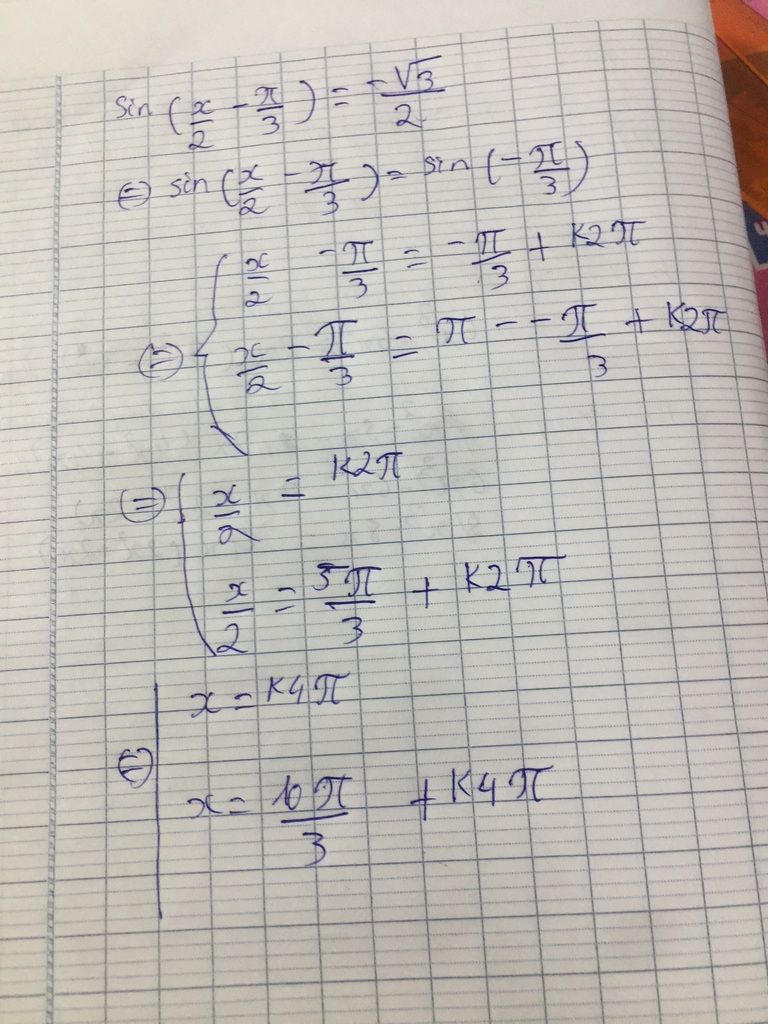 sin(x/2 - π/3) = -√3/2
⇔ sin(x/2 - π/3) = sin(-π/3)
x/2 - π/3 = -π/3 + K2π
⇔ { x/2 - π/3 = π - -π/3 + K2π
⇔ { x/2 = K2π
x/2 = 5π/3 + K2π
x = K4π
⇔ | x = 10π/3 + K4π